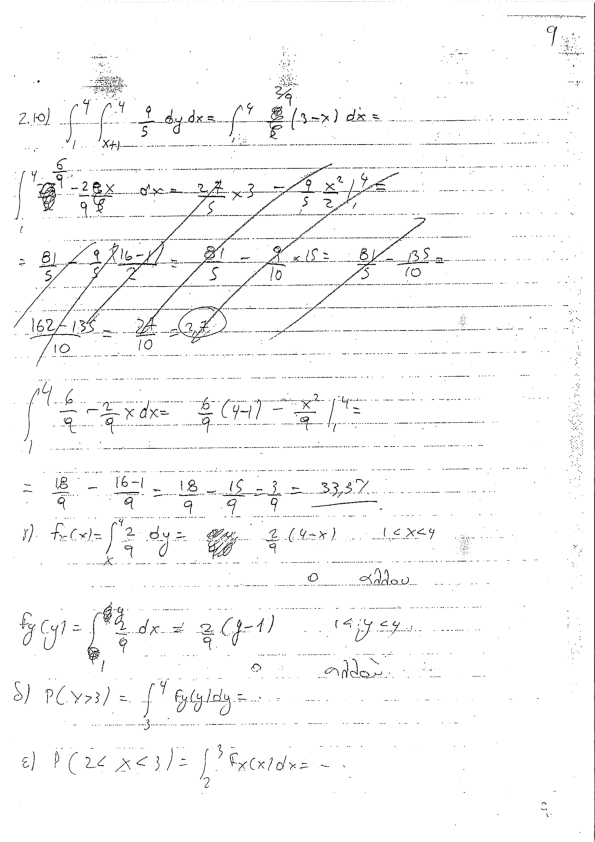 9
2.10) ∫₁⁴ ∫ₓ₊₁⁴ 9/5 dy dx = ∫₁⁴ 2/9 (3-x) dx =
∫₁⁴ 6/9 - 2/9 x dx = 27/5 × 3 - 9/5 x²/2 |₁⁴ =
= 81/5 - 9/5 (16-1)/2 = 81/5 - 9/10 × 15 = 81/5 - 135/10 =
162-135/10 = 27/10 = 2,7
∫₁⁴ 6/9 - 2/9 x dx = 6/9 (4-1) - x²/9 |₁⁴ =
= 18/9 - 16-1/9 = 18/9 - 15/9 = 3/9 = 33,3%
γ) fx(x) = ∫ₓ⁴ 2/9 dy = 2/9 (4-x) 1<x<4
0 αλλου
fy(y) = ∫₁ʸ 2/9 dx = 2/9 (y-1) 1<y<4
0 αλλού
δ) P(Y>3) = ∫₃⁴ fy(y) dy = ..
ε) P(2<X<3) = ∫₂³ fx(x) dx = - ..
9